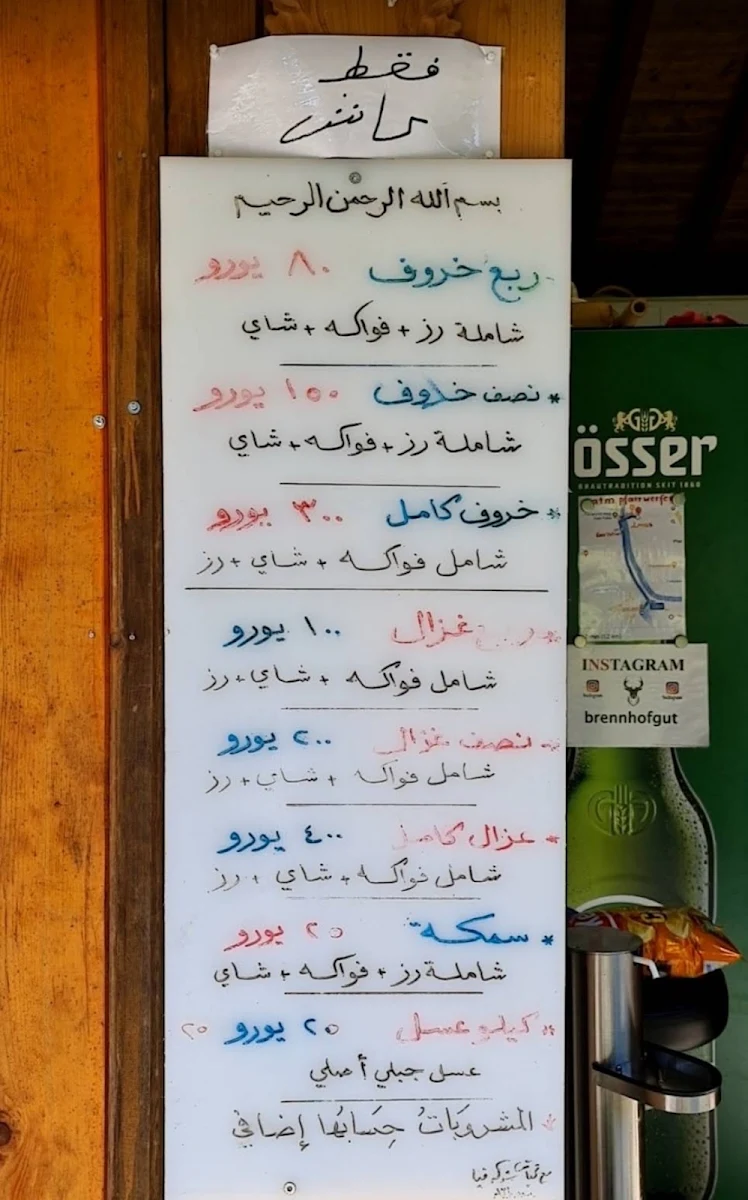 فقط
كاش
بسم الله الرحمن الرحيم
ربع خروف ٨٠ يورو
شاملة رز + فواكه + شاي
* نصف خروف ١٥٠ يورو
شاملة رز + فواكه + شاي
* خروف كامل ٣٠٠ يورو
شامل فواكه + شاي + رز
* ربع غزال ١٠٠ يورو
شامل فواكه + شاي + رز
* نصف غزال ٢٠٠ يورو
شامل فواكه + شاي + رز
* غزال كامل ٤٠٠ يورو
شامل فواكه + شاي + رز
* سمكة ٢٥ يورو
شاملة رز + فواكه + شاي
* كيلو عسل ٢٥ يورو ٢٥
عسل جبلي أصلي
* المشروبات حسابها إضافي
مع تحيات
GG
össer
BRAUTRADITION SEIT 1860
INSTAGRAM
Instagram Instagram
brennhofgut